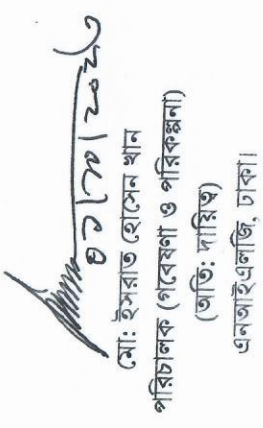 মো: ইসরাত হোসেন খান
পরিচালক (গবেষণা ও পরিকল্পনা)
(অতি: দায়িত্ব)
এনআইএলজি, ঢাকা।